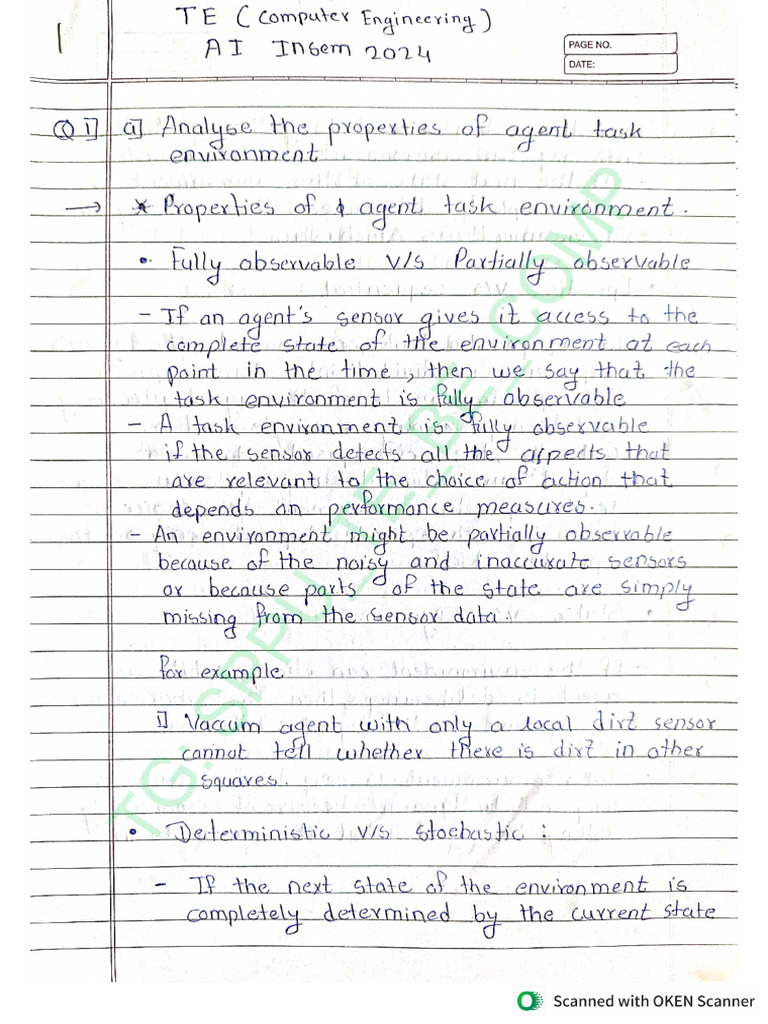 1
TE (Computer Engineering)
AI Insem 2024
PAGE NO.
DATE:
Q 1] a] Analyse the properties of agent task
environment
→ * Properties of agent task environment.
• Fully observable V/s Partially observable
- If an agent's sensor gives it access to the
complete state of the environment at each
point in the time, then we say that the
task environment is fully observable
- A task environment is fully observable
if the sensor detects all the aspects that
are relevant to the choice of action that
depends on performance measures.
- An environment might be partially observable
because of the noisy and inaccurate sensors
or because parts of the state are simply
missing from the sensor data.
for example
i] Vaccum agent with only a local dirt sensor
cannot tell whether there is dirt in other
squares.
• Deterministic V/s Stochastic :
- If the next state of the environment is
completely determined by the current state
TG: SPPU_TE_BE_COMP
Scanned with OKEN Scanner